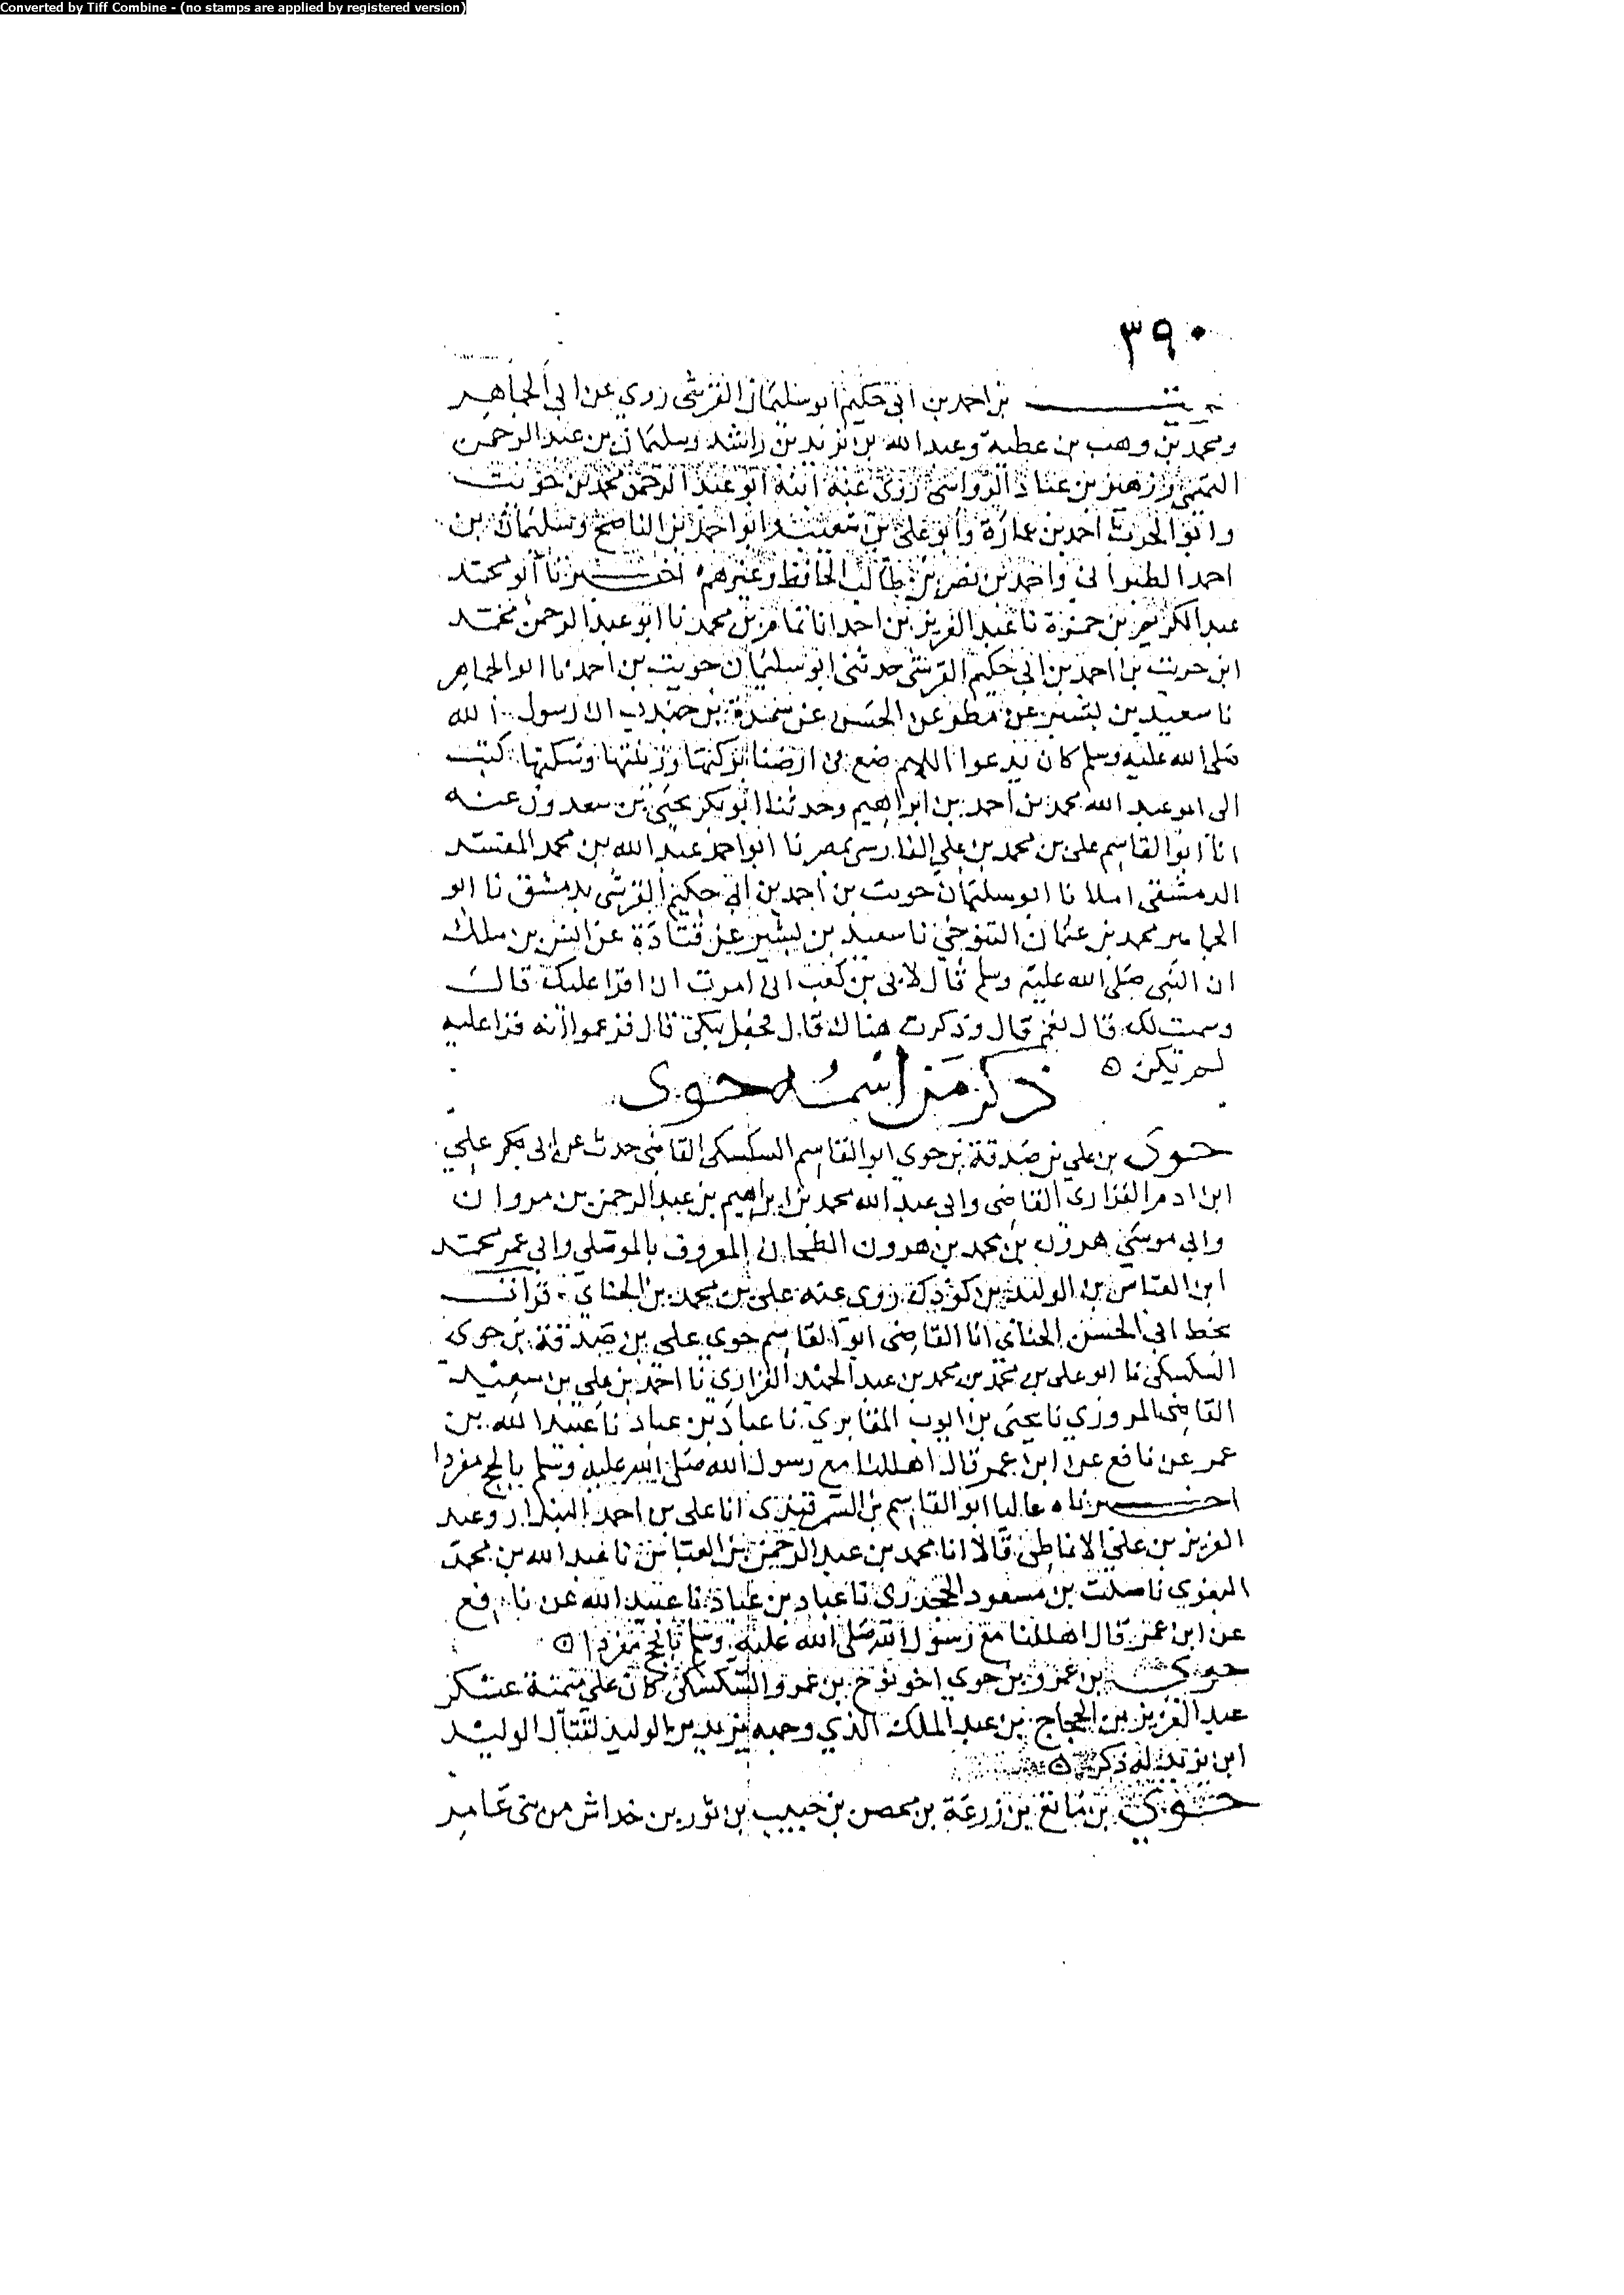 Converted by Tiff Combine - (no stamps are applied by registered version)
٣٩٠
بن احمد بن ابي حكيم ابو سليمان القرشى روي عن ابي الجماهير
ومحمد بن وهب بن عطية وعبد الله بن يزيد بن راشد وسليمان بن عبد الرحمن
التميمى وزهير بن عباد الرواسى روى عنه ابنه ابو عبد الرحمن محمد بن حويت
وابو الحرث احمد بن عمارة وابو على بن شعيب وابو احمد بن الناصح وسليمان بن
احمد الطبرانى واحمد بن نصر بن طالب الحافظ وغيرهم اخبرنا ابو محمد
عبد الكريم بن حمزة نا عبد العزيز بن احمد انا تمام بن محمد نا ابو عبد الرحمن محمد
ابن حويت بن احمد بن ابي حكيم القرشى حدثنى ابو سليمان حويت بن احمد نا ابو الجماهر
نا سعيد بن بشير عن مطر عن الحسن عن سمرة بن جندب ان رسول الله
صلى الله عليه وسلم كان يدعوا اللهم ضع في ارضنا بركتها وزينتها وسكنها كتب
الى ابو عبد الله محمد بن احمد بن ابراهيم وحدثنا ابو بكر يحيى بن سعدون عنه
انا ابو القاسم على بن محمد بن علي الفارسى بمصر نا ابو احمد عبد الله بن محمد المفسر
الدمشقى املا نا ابو سليمان حويت بن احمد بن ابي حكيم القرشى بدمشق نا ابو
الجماهر محمد بن عثمان التنوخي نا سعيد بن بشير عن قتادة عن انس بن ملك
ان النبى صلى الله عليه وسلم قال لابى بن كعب انى امرت ان اقرا عليك قال
وسميت لك قال نعم قال وذكرت هناك قال فجعل يبكى قال فزعموا انه قرا عليه
لم يكن ٥
ذكر من اسمه حوى
حوى بن علي بن صدقة بن حوي ابو القاسم السكسكى القاضى حدث عن ابى بكر علي
ابن ادم الفزارى القاضى وابى عبد الله محمد بن ابراهيم بن عبد الرحمن بن مروان
وابى موسى هرون بن محمد بن هرون الطحان المعروف بالموصلي وابى عمر محمد
ابن العباس بن الوليد بن كوذك روى عنه على بن محمد بن الحنائي قرات
بخط ابي الحسن الحنائي انا القاضى ابو القاسم حوي علي بن صدقة بن حوى
السكسكى نا ابو على بن محمد بن محمد بن عبد الحميد الفزاري نا احمد بن علي بن سعيد
القاضى المروزي نا يحيى بن ايوب المقابري نا عباد بن عباد نا عبيد الله بن
عمر عن نافع عن ابن عمر قال اهللنا مع رسول الله صلى الله عليه وسلم بالحج مفردا
اخبرناه عاليا ابو القاسم بن السمرقندى انا على بن احمد البندار وعبد
العزيز بن علي الانماطى قالا انا محمد بن عبد الرحمن بن العباس نا عبد الله بن محمد
البغوي نا صلت بن مسعود الجحدرى نا عباد بن عباد نا عبيد الله عن نافع
عن ابن عمر قال اهللنا مع رسول الله صلى الله عليه وسلم بالحج مفردا ٥
حوي بن عمرو بن حوي اخو نوح بن عمرو السكسكى كان على ميمنة عسكر
عبد العزيز بن الحجاج بن عبد الملك الذي وجهه يزيد بن الوليد لقتال الوليد
ابن يزيد له ذكر ٥
حوي بن مانع بن زرعة بن محصن بن حبيب بن ثور بن خداش من بنى عامر